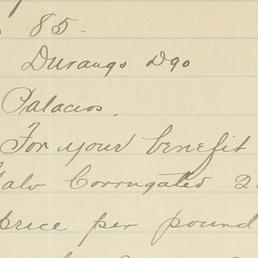 85.
Durango Dgo
Palacios,
For your benefit
Galv Corrugated 2
price per pound